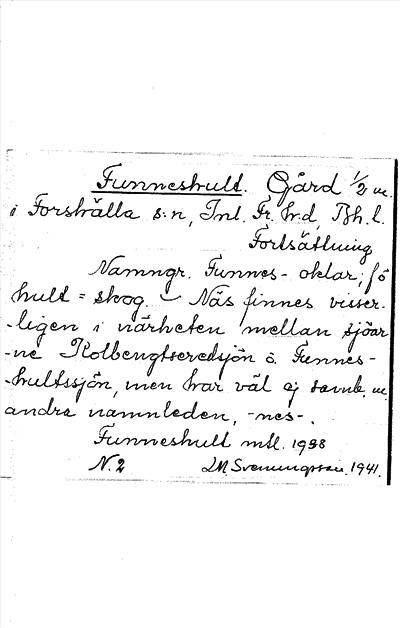 Funneshult. Gård 1/2 m.
i Forshälla s:n, Inl. Fr. hrd, Bh. l.
Fortsättning
Namngr. Funnes- oklar; fö
hult = skog. Näs finnes visser-
-ligen i närheten mellan sjöar-
-ne Kolbengtseredsjön o. Funnes-
-hultssjön, men har väl ej samb. m.
andra namnleden, -nes-.
Funneshult mtl. 1938
N. 2 Svenungsson. 1941.